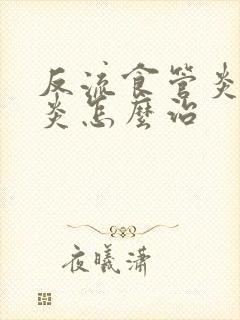 反流食管炎
炎怎麼治
夜曦瀟